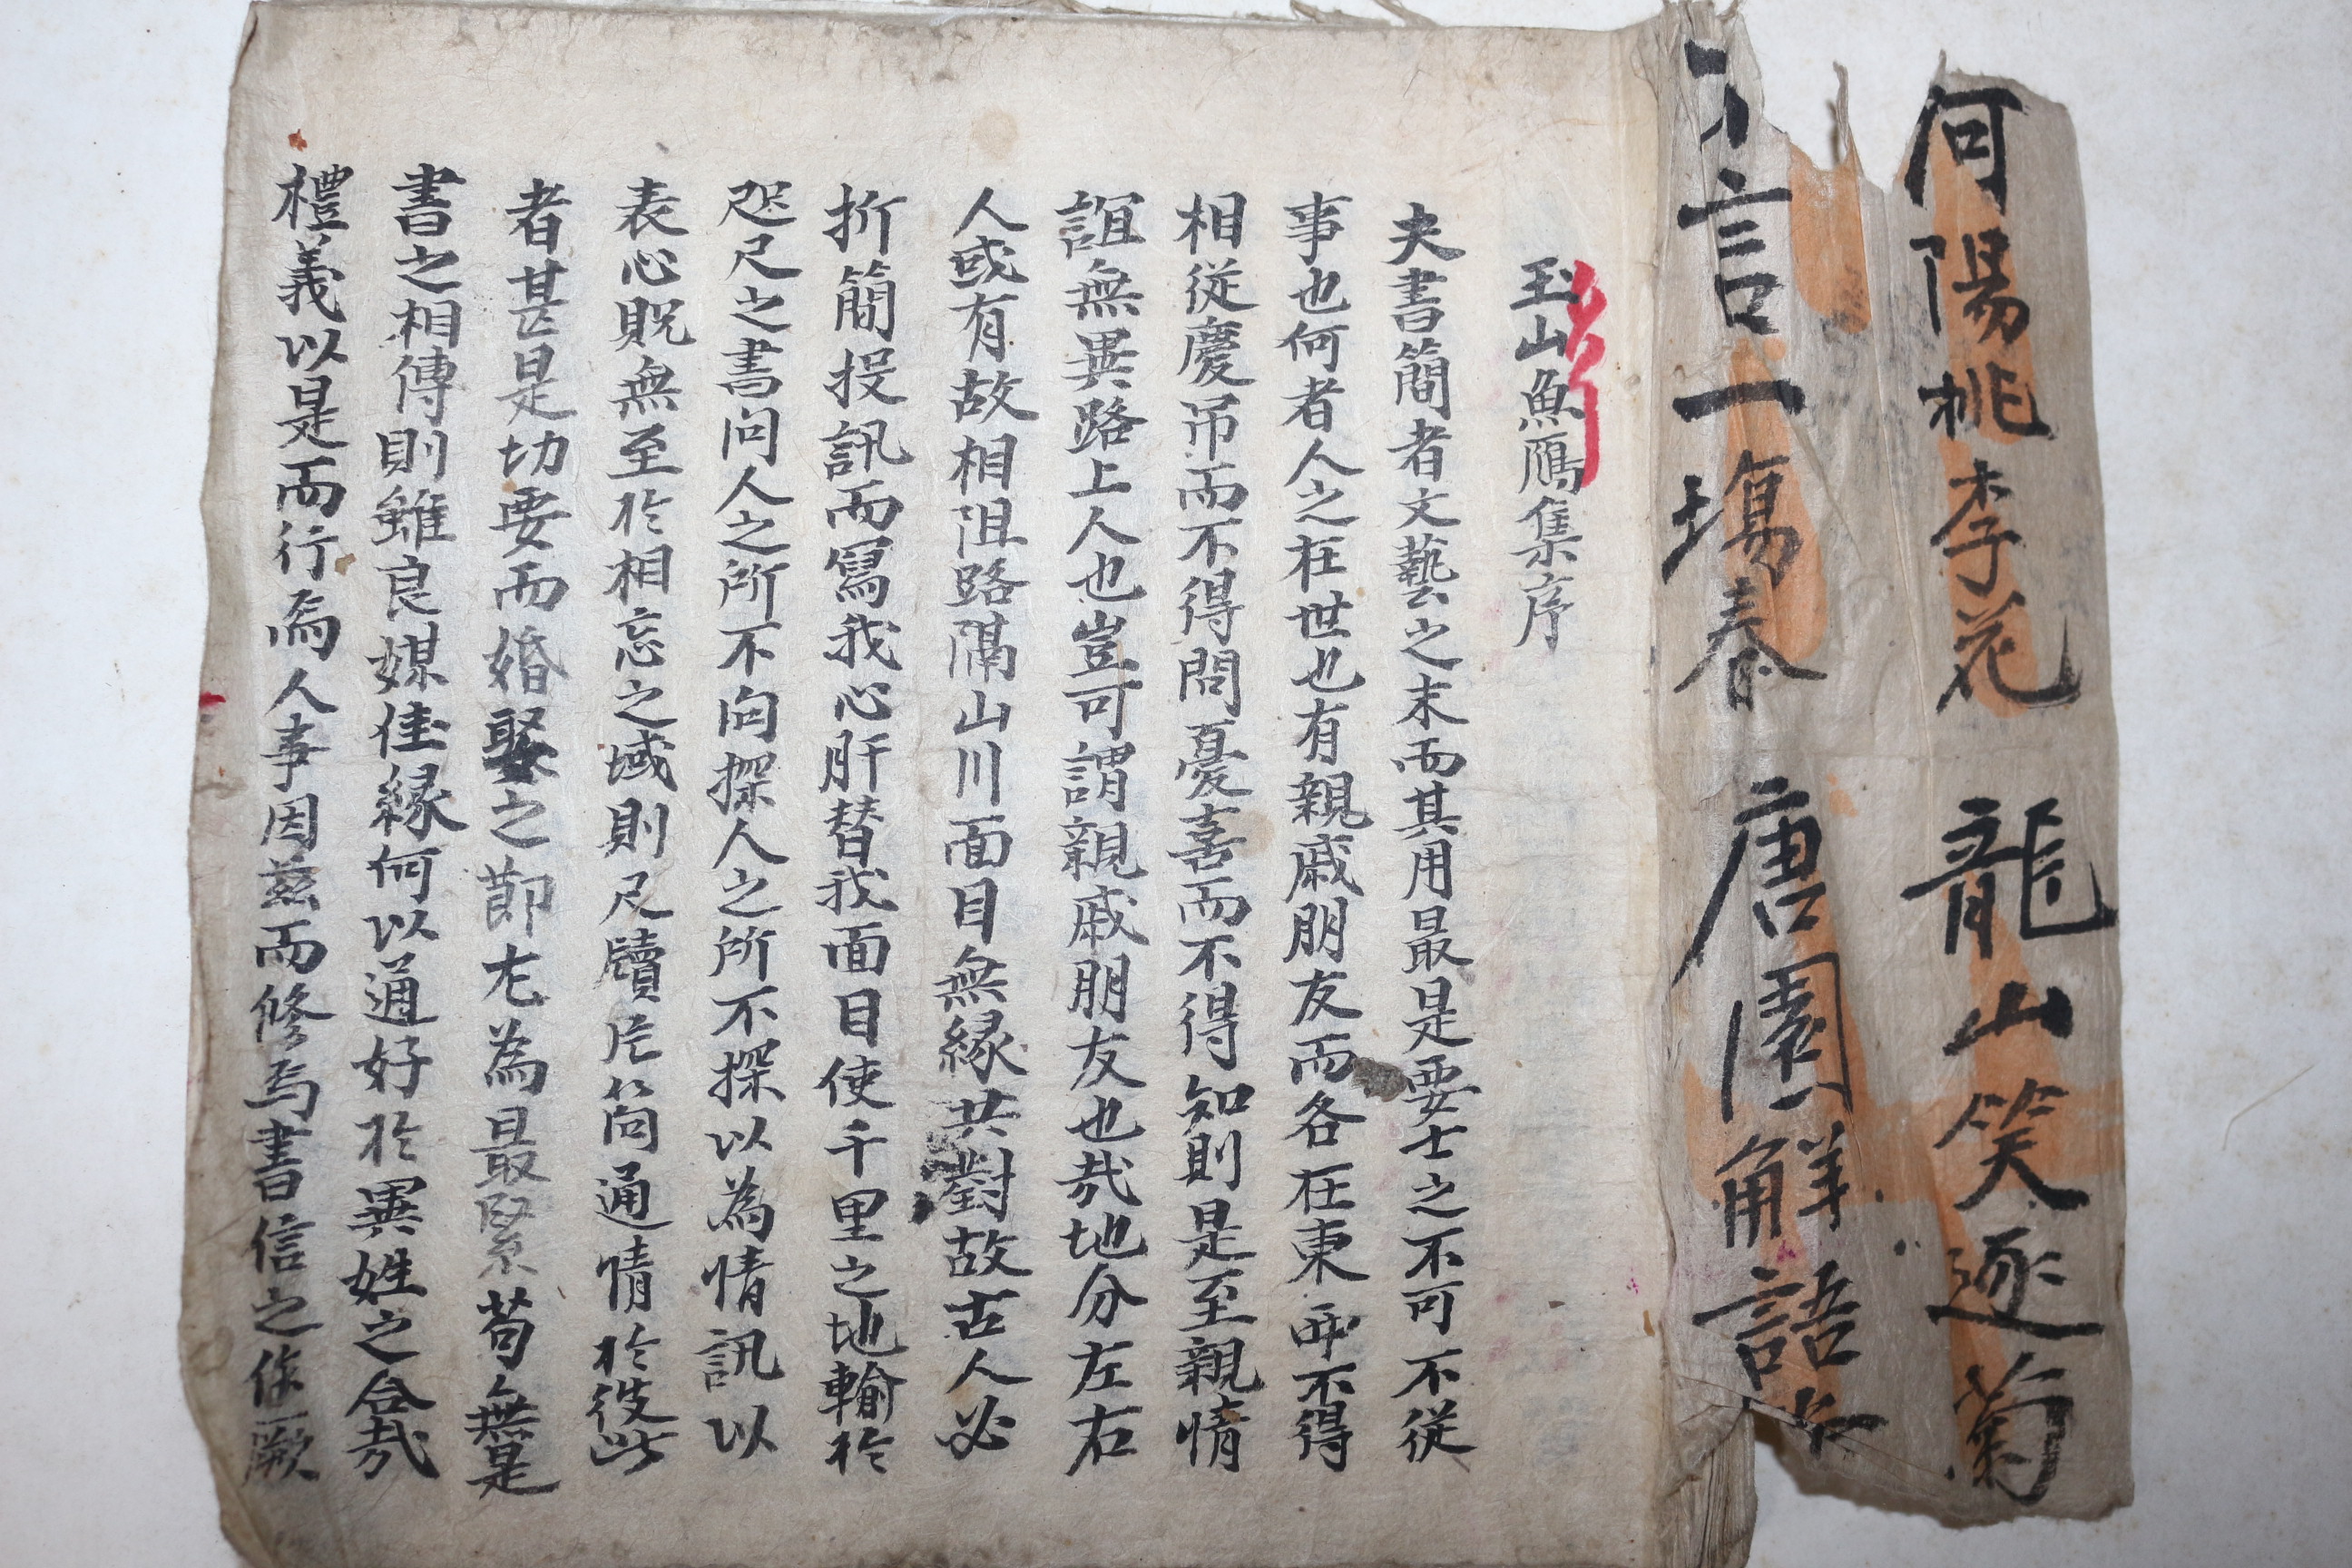 何陽桃李花 龍山笑逐菊
言一場春 唐園解語
玉山魚鴈集序
夫書簡者文藝之末而其用最是要士之不可不從
事也何者人之在世也有親戚朋友而各在東 不得
相從慶吊而不得問憂喜而不得知則是至親情
誼無異路上人也豈可謂親戚朋友也㢤地分左右
人或有故相阻路隔山川面目無緣共對故古人必
折簡投訊而寫我心肝替我面目使千里之地輸於
咫尺之書问人之所不向探人之所不探以為情訊以
表心貺無至於相忘之域則尺牘片简通情於彼此
者甚是切要而婚娶之節尤為最緊苟無是
書之相傳則雖良媒佳緣何以通好於異姓之合㢤
禮義以是而行焉人事因兹而修焉書信之作厥